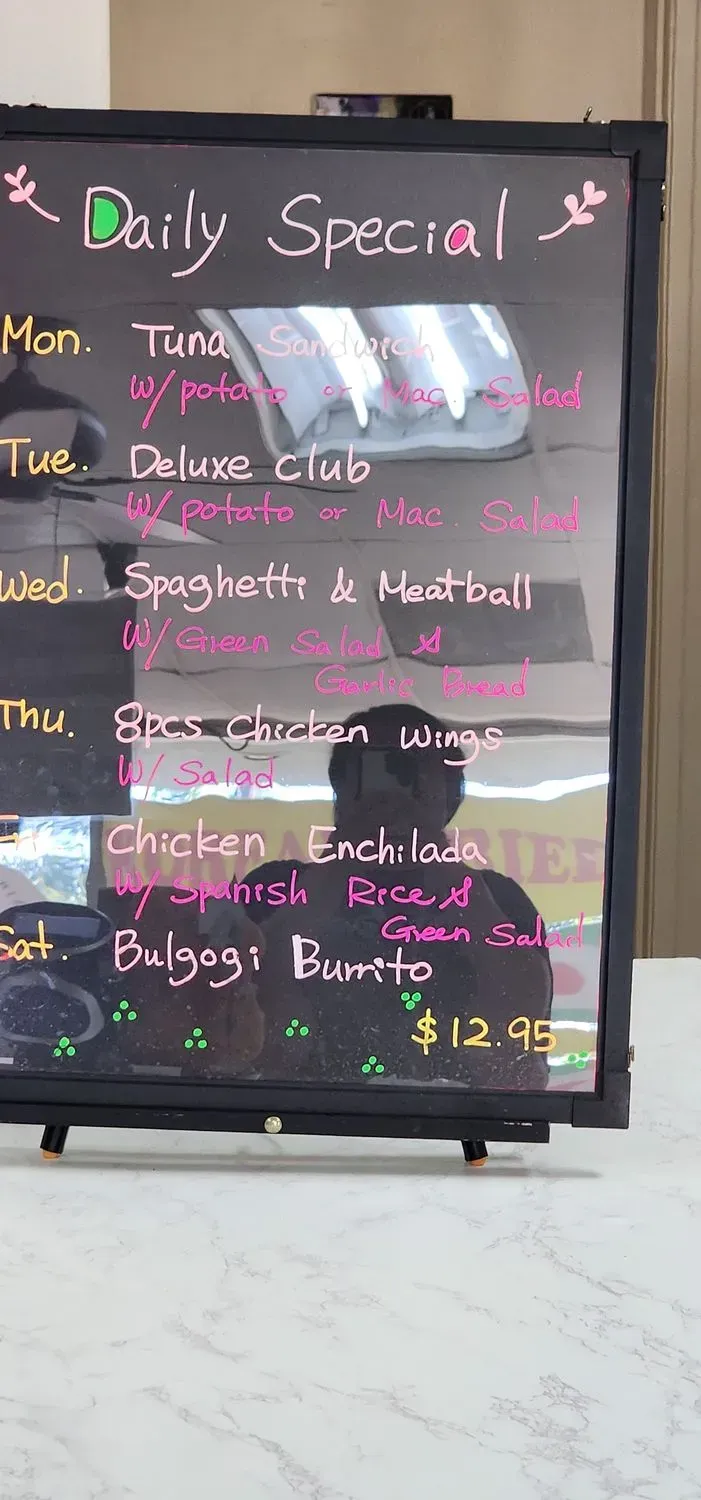 Daily Special
Mon. Tuna Sandwich
W/potato or Mac. Salad
Tue. Deluxe club
W/potato or Mac. Salad
Wed. Spaghetti & Meatball
W/Green Salad &
Garlic Bread
Thu. 8pcs chicken wings
W/ Salad
Fri Chicken Enchilada
W/Spanish Rice &
Green Salad
Sat. Bulgogi Burrito
$12.95